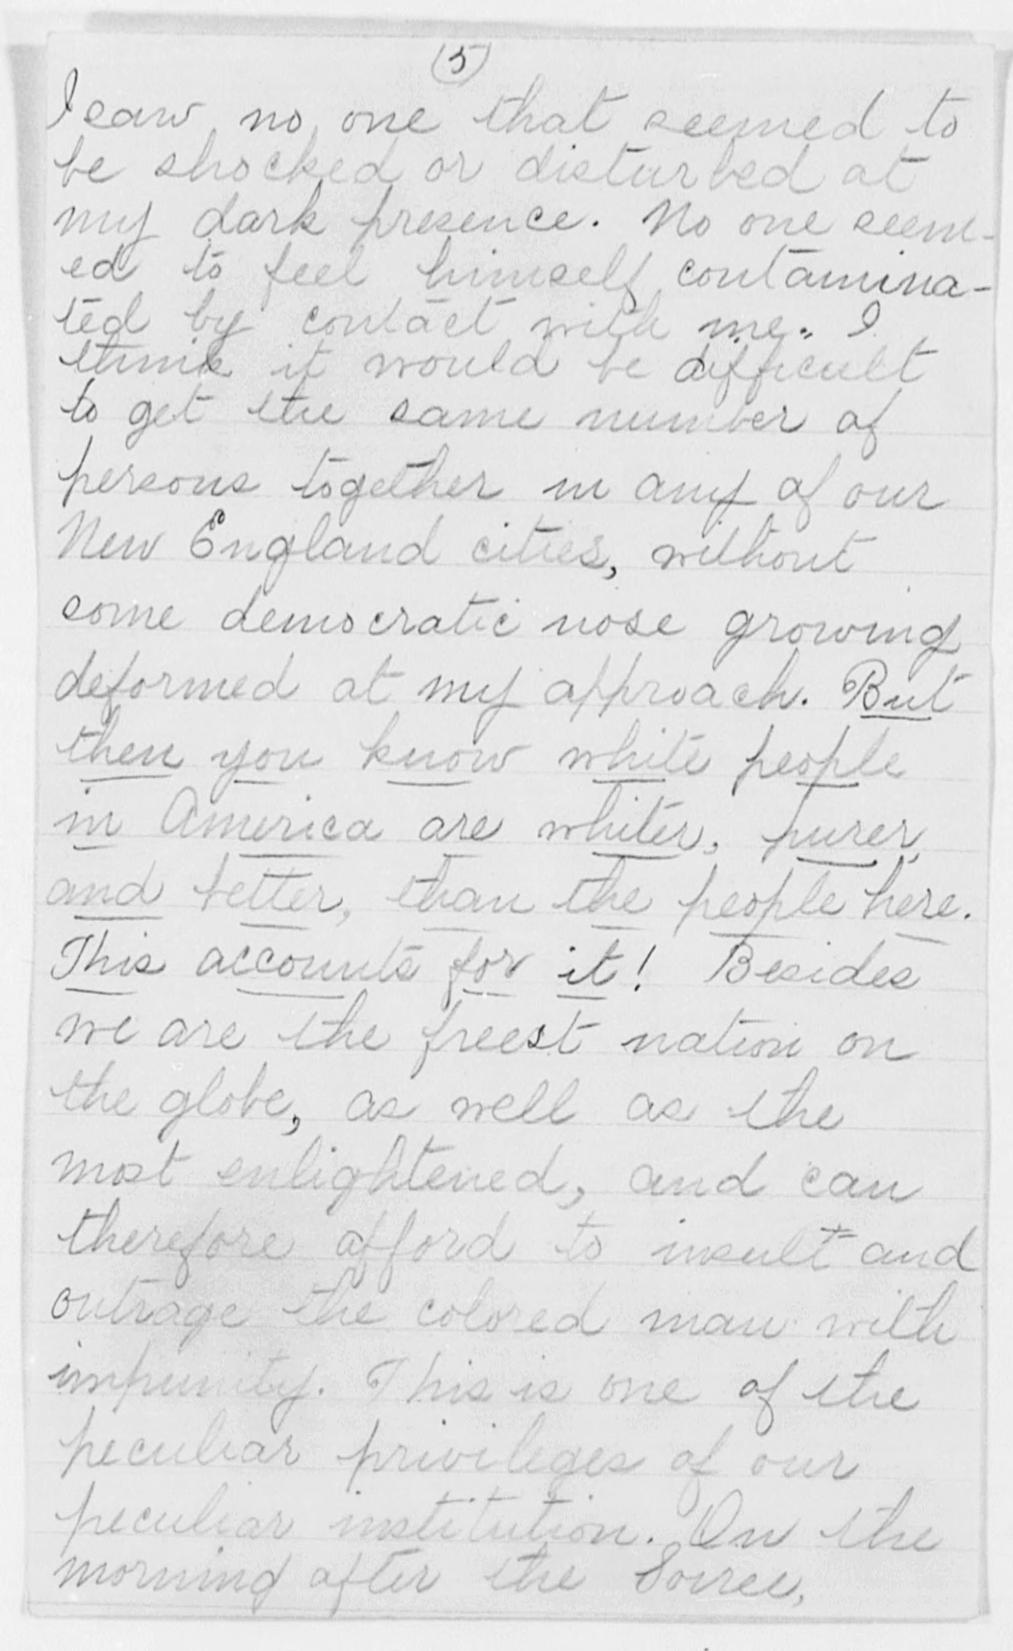 (5)
I saw no one that seemed to
be shocked or disturbed at
my dark presence. No one seem-
ed to feel himself contamina-
ted by contact with me. I
think it would be difficult
to get the same number of
persons together in any of our
New England cities, without
some democratic nose growing
deformed at my approach. But
then you know white people
in America are whiter, purer,
and better, than the people here.
This accounts for it! Besides
we are the freest nation on
the globe, as well as the
most enlightened, and can
therefore afford to insult and
outrage the colored man with
impunity. This is one of the
peculiar privileges of our
peculiar institution. On the
morning after the Soiree,